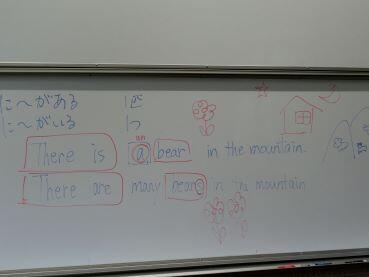 に〜がある 1匹
に〜がいる 1つ
an
There is a bear in the mountain.
There are many bears in the mountain